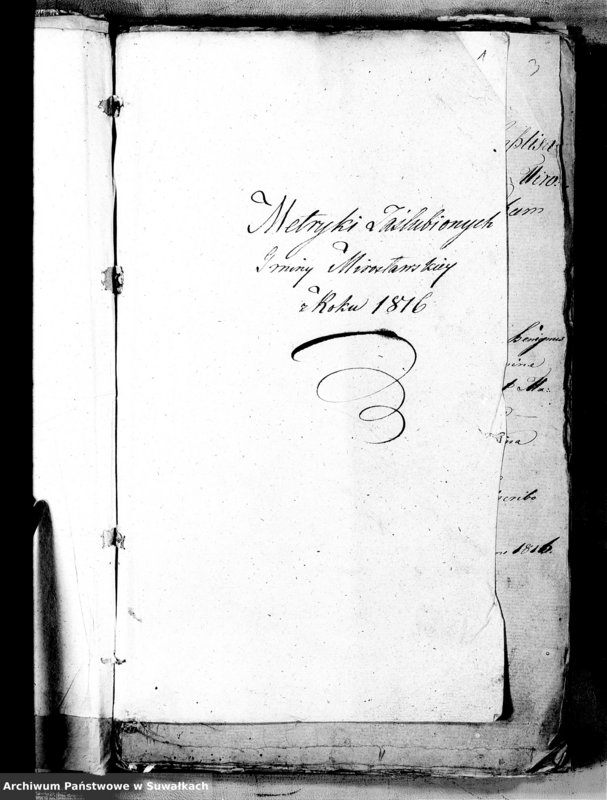 1
3
Metryki Zaślubionych
Gminy Mirosławskiey
z Roku 1816
1816.
Archiwum Państwowe w Suwałkach